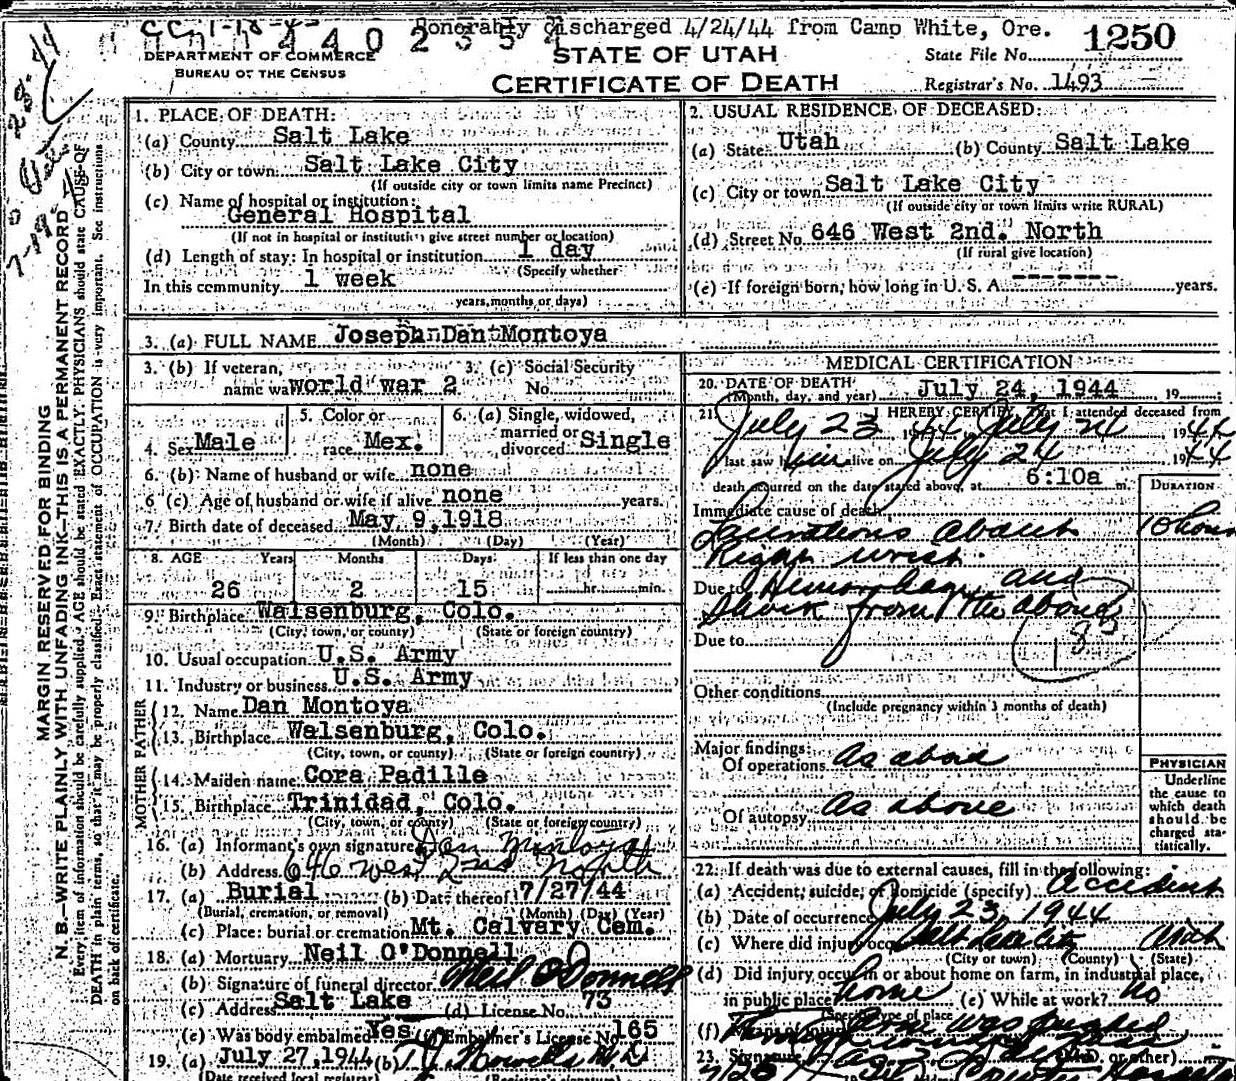 Honorably discharged 4/24/44 from Camp White, Ore.
1250
DEPARTMENT OF COMMERCE
BUREAU OF THE CENSUS
STATE OF UTAH
CERTIFICATE OF DEATH
State File No.
Registrar's No. 1493
MARGIN RESERVED FOR BINDING
N. B.—WRITE PLAINLY WITH UNFADING INK—THIS IS A PERMANENT RECORD
Every item of information should be carefully supplied. AGE should be stated EXACTLY. PHYSICIANS should state CAUSE OF
DEATH in plain terms, so that it may be properly classified. Each statement of OCCUPATION is very important. See instructions
on back of certificate.
1. PLACE OF DEATH:
(a) County Salt Lake
(b) City or town Salt Lake City
(If outside city or town limits name Precinct)
(c) Name of hospital or institution:
General Hospital
(If not in hospital or institution give street number or location)
(d) Length of stay: In hospital or institution 1 day
(Specify whether
In this community 1 week
years, months or days)
2. USUAL RESIDENCE OF DECEASED:
(a) State Utah (b) County Salt Lake
(c) City or town Salt Lake City
(If outside city or town limits write RURAL)
(d) Street No. 646 West 2nd. North
(If rural give location)
(e) If foreign born, how long in U. S. A. ------- years.
3. (a) FULL NAME Joseph Dan Montoya
3. (b) If veteran, name war world war 2
3. (c) Social Security No.
4. Sex Male
5. Color or race Mex.
6. (a) Single, widowed, married or divorced Single
6. (b) Name of husband or wife none
6 (c) Age of husband or wife if alive none years.
7. Birth date of deceased May 9, 1918
(Month) (Day) (Year)
8. AGE Years Months Days If less than one day
26 2 15 hr. min.
9. Birthplace Walsenburg, Colo.
(City, town, or county) (State or foreign country)
10. Usual occupation U.S. Army
11. Industry or business U.S. Army
FATHER
12. Name Dan Montoya
13. Birthplace Walsenburg, Colo.
(City, town, or county) (State or foreign country)
MOTHER
14. Maiden name Cora Padille
15. Birthplace Trinidad, Colo.
(City, town, or county) (State or foreign country)
16. (a) Informant's own signature Dan Montoya
(b) Address 646 west 2nd North
17. (a) Burial (b) Date thereof 7/27/44
(Burial, cremation, or removal) (Month) (Day) (Year)
(c) Place: burial or cremation Mt. Calvary Cem.
18. (a) Mortuary Neil O'Donnell
(b) Signature of funeral director Neil O'Donnell
(c) Address Salt Lake (d) License No. 73
(e) Was body embalmed Yes (f) Embalmer's License No. 165
19. (a) July 27, 1944 (b)
(Date received local registrar) (Registrar's signature)
MEDICAL CERTIFICATION
20. DATE OF DEATH July 24, 1944 19
(Month, day, and year)
21. I HEREBY CERTIFY, That I attended deceased from
July 23 1944 July 24, 1944
I last saw him alive on July 24 1944
death occurred on the date stated above, at 6:10a m.
DURATION
Immediate cause of death
Lacerations about 10 hours
Right wrist.
Due to Hemorrhage and
shock from the above
Due to
Other conditions
(Include pregnancy within 3 months of death)
Major findings:
Of operations As above
Of autopsy As above
PHYSICIAN
Underline
the cause to
which death
should be
charged sta-
tistically.
22. If death was due to external causes, fill in the following:
(a) Accident, suicide, or homicide (specify) Accident
(b) Date of occurrence July 23, 1944
(c) Where did injury occur Salt Lake City Utah
(City or town) (County) (State)
(d) Did injury occur in or about home on farm, in industrial place,
in public place home (e) While at work? no
(Specify type of place
(f) Means of injury Arm was pushed
Through window glass
23. Signature (M.D. or other)